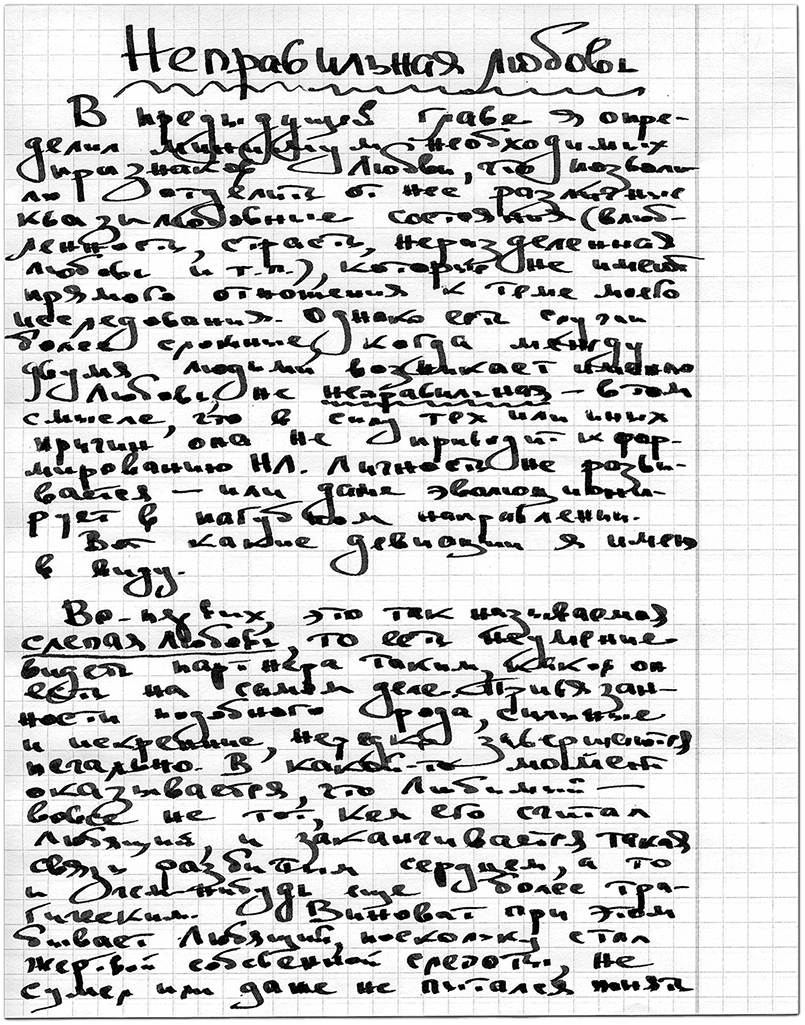 Неправильная любовь
В предыдущей главе я опре-
делил минимум необходимых
признаков Любви, что позволи-
ло отделить от нее различные
квазилюбовные состояния (влюб-
ленность, страсть, неразделенная
любовь и т.п.), которые не имеют
прямого отношения к теме моего
исследования. Однако есть случаи
более сложные, когда между
двумя людьми возникает именно
Любовь, но неправильная – в том
смысле, что в силу тех или иных
причин она не приводит к фор-
мированию НЛ. Личность не разви-
вается – или даже эволюциони-
рует в пагубном направлении.
Вот какие девиации я имею
в виду.
Во-первых, это так называемая
слепая Любовь, то есть неумение
видеть партнера таким, каков он
есть на самом деле. Привязан-
ности подобного рода, сильные
и искренние, нередко завершаются
печально. В какой-то момент
оказывается, что Любимый –
вовсе не тот, кем его считал
Любящий, и заканчивается такая
связь разбитым сердцем, а то
и чем-нибудь еще более тра-
гическим. Виноват при этом
бывает Любящий, поскольку стал
жертвой собственной слепоты, не
сумел или даже не пытался понять